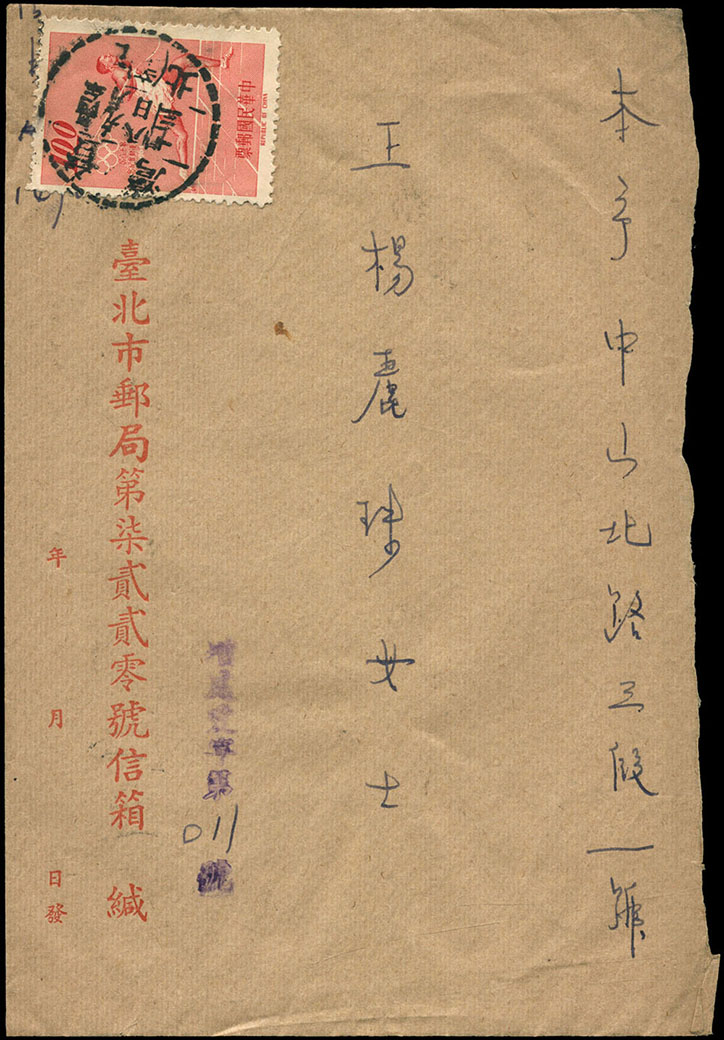 本市中山北路三段一號
王楊麗珠女士
第
011
號
臺北市郵局第柒貳貳零號信箱 緘
年 月 日發
中華民國郵票
REPUBLIC OF CHINA